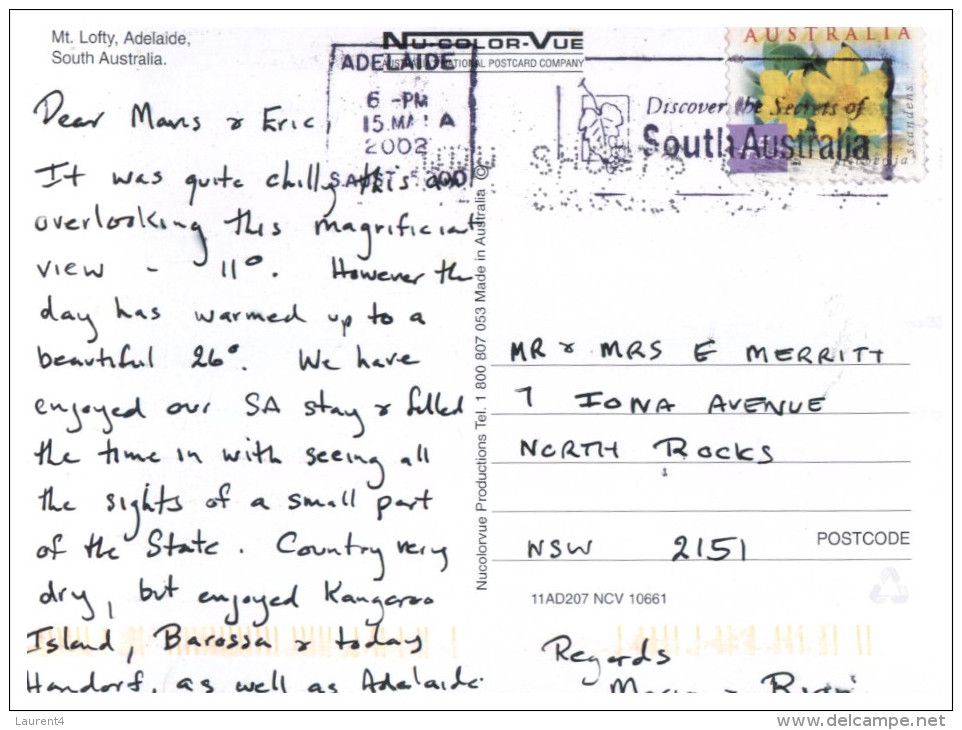 Mt. Lofty, Adelaide,
South Australia.
NU-COLOR-VUE
AUSTRALIA'S NATIONAL POSTCARD COMPANY
ADELAIDE
6 -PM
15 MA
2002
SA 5000
AUSTRALIA
Discover the Secrets of
South Australia
scandens
Dear Mavis & Eric,
It was quite chilly this am
overlooking this magnificiant
view - 11°. However the
day has warmed up to a
beautiful 26°. We have
enjoyed our SA stay & filled
the time in with seeing all
the sights of a small part
of the State. Country very
dry, but enjoyed Kangaroo
Island, Barossa & today
Handorf, as well as Adelaide.
Nucolorvue Productions Tel. 1 800 807 053 Made in Australia ©
MR & MRS E MERRITT
7 IONA AVENUE
NORTH ROCKS
NSW 2151 POSTCODE
11AD207 NCV 10661
Regards
Laurent4
www.delcampe.net